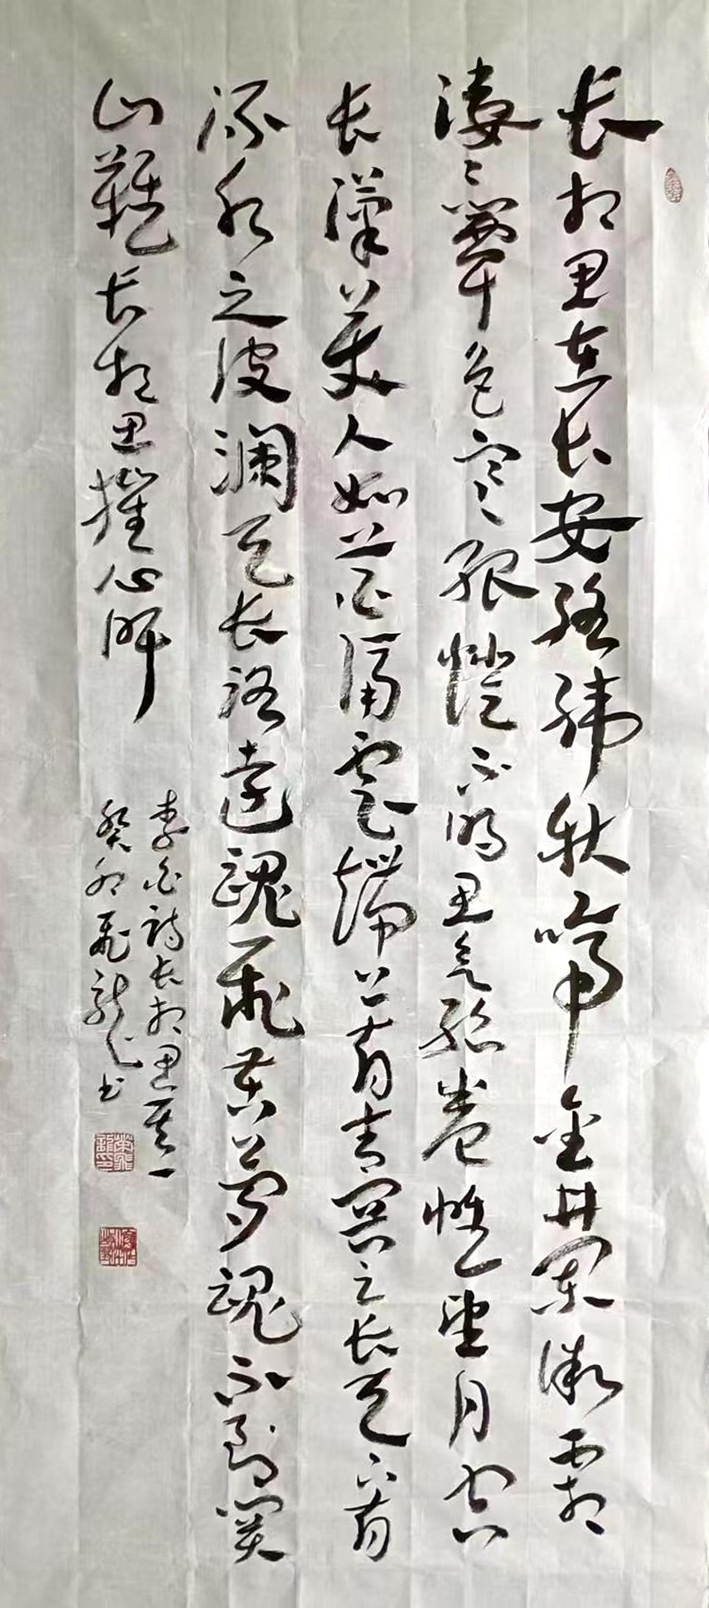 长相思在长安络纬秋啼金井阑微霜
凄凄簟色寒孤灯不明思欲绝卷帷望月空
长叹美人如花隔云端上有青冥之长天下有
渌水之波澜天长路远魂飞苦梦魂不到关
山难长相思摧心肝
李白诗长相思其一
癸卯飞龙书